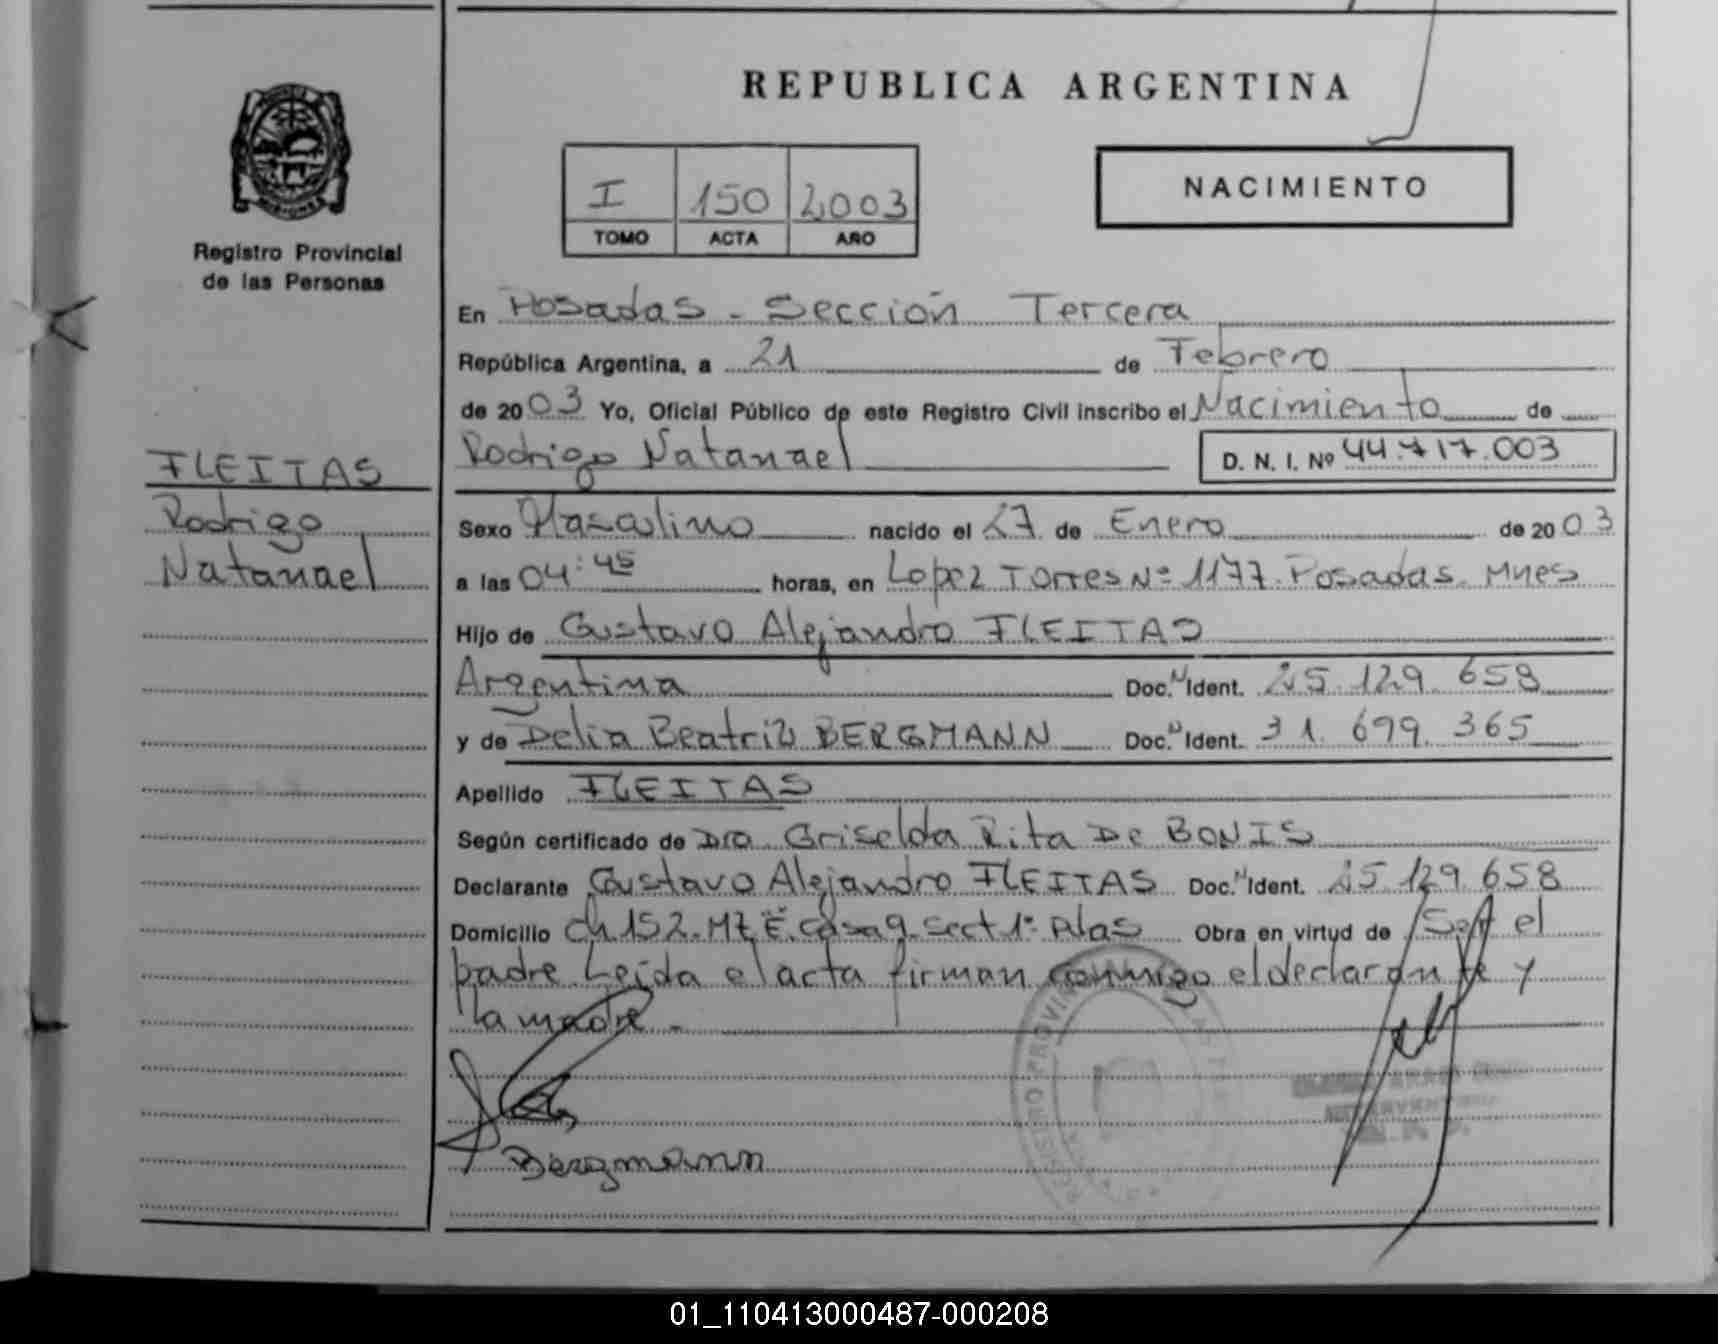 REPUBLICA ARGENTINA
I 150 2003
TOMO ACTA AÑO
NACIMIENTO
MISIONES
Registro Provincial
de las Personas
FLEITAS
Rodrigo
Natanael
En Posadas - Sección Tercera
República Argentina, a 21 de Febrero
de 2003 Yo, Oficial Público de este Registro Civil inscribo el Nacimiento de
Rodrigo Natanael D. N. I. Nº 44.717.003
Sexo Masculino nacido el 27 de Enero de 2003
a las 04:45 horas, en Lopez Torres Nº 1177. Posadas. Mnes
Hijo de Gustavo Alejandro FLEITAS
Argentina Doc. Ident. 25.129.658
y de Delia Beatriz BERGMANN Doc. Ident. 31.699.365
Apellido FLEITAS
Según certificado de Dra. Griselda Rita De BONIS
Declarante Gustavo Alejandro FLEITAS Doc. Ident. 25.129.658
Domicilio Ch 152. Mz E. casa 9. sect 1º Alas Obra en virtud de Ser el
padre. Leida el acta firman conmigo el declarante y
la madre -
Bergmann
REGISTRO PROVINCIAL
01_110413000487-000208